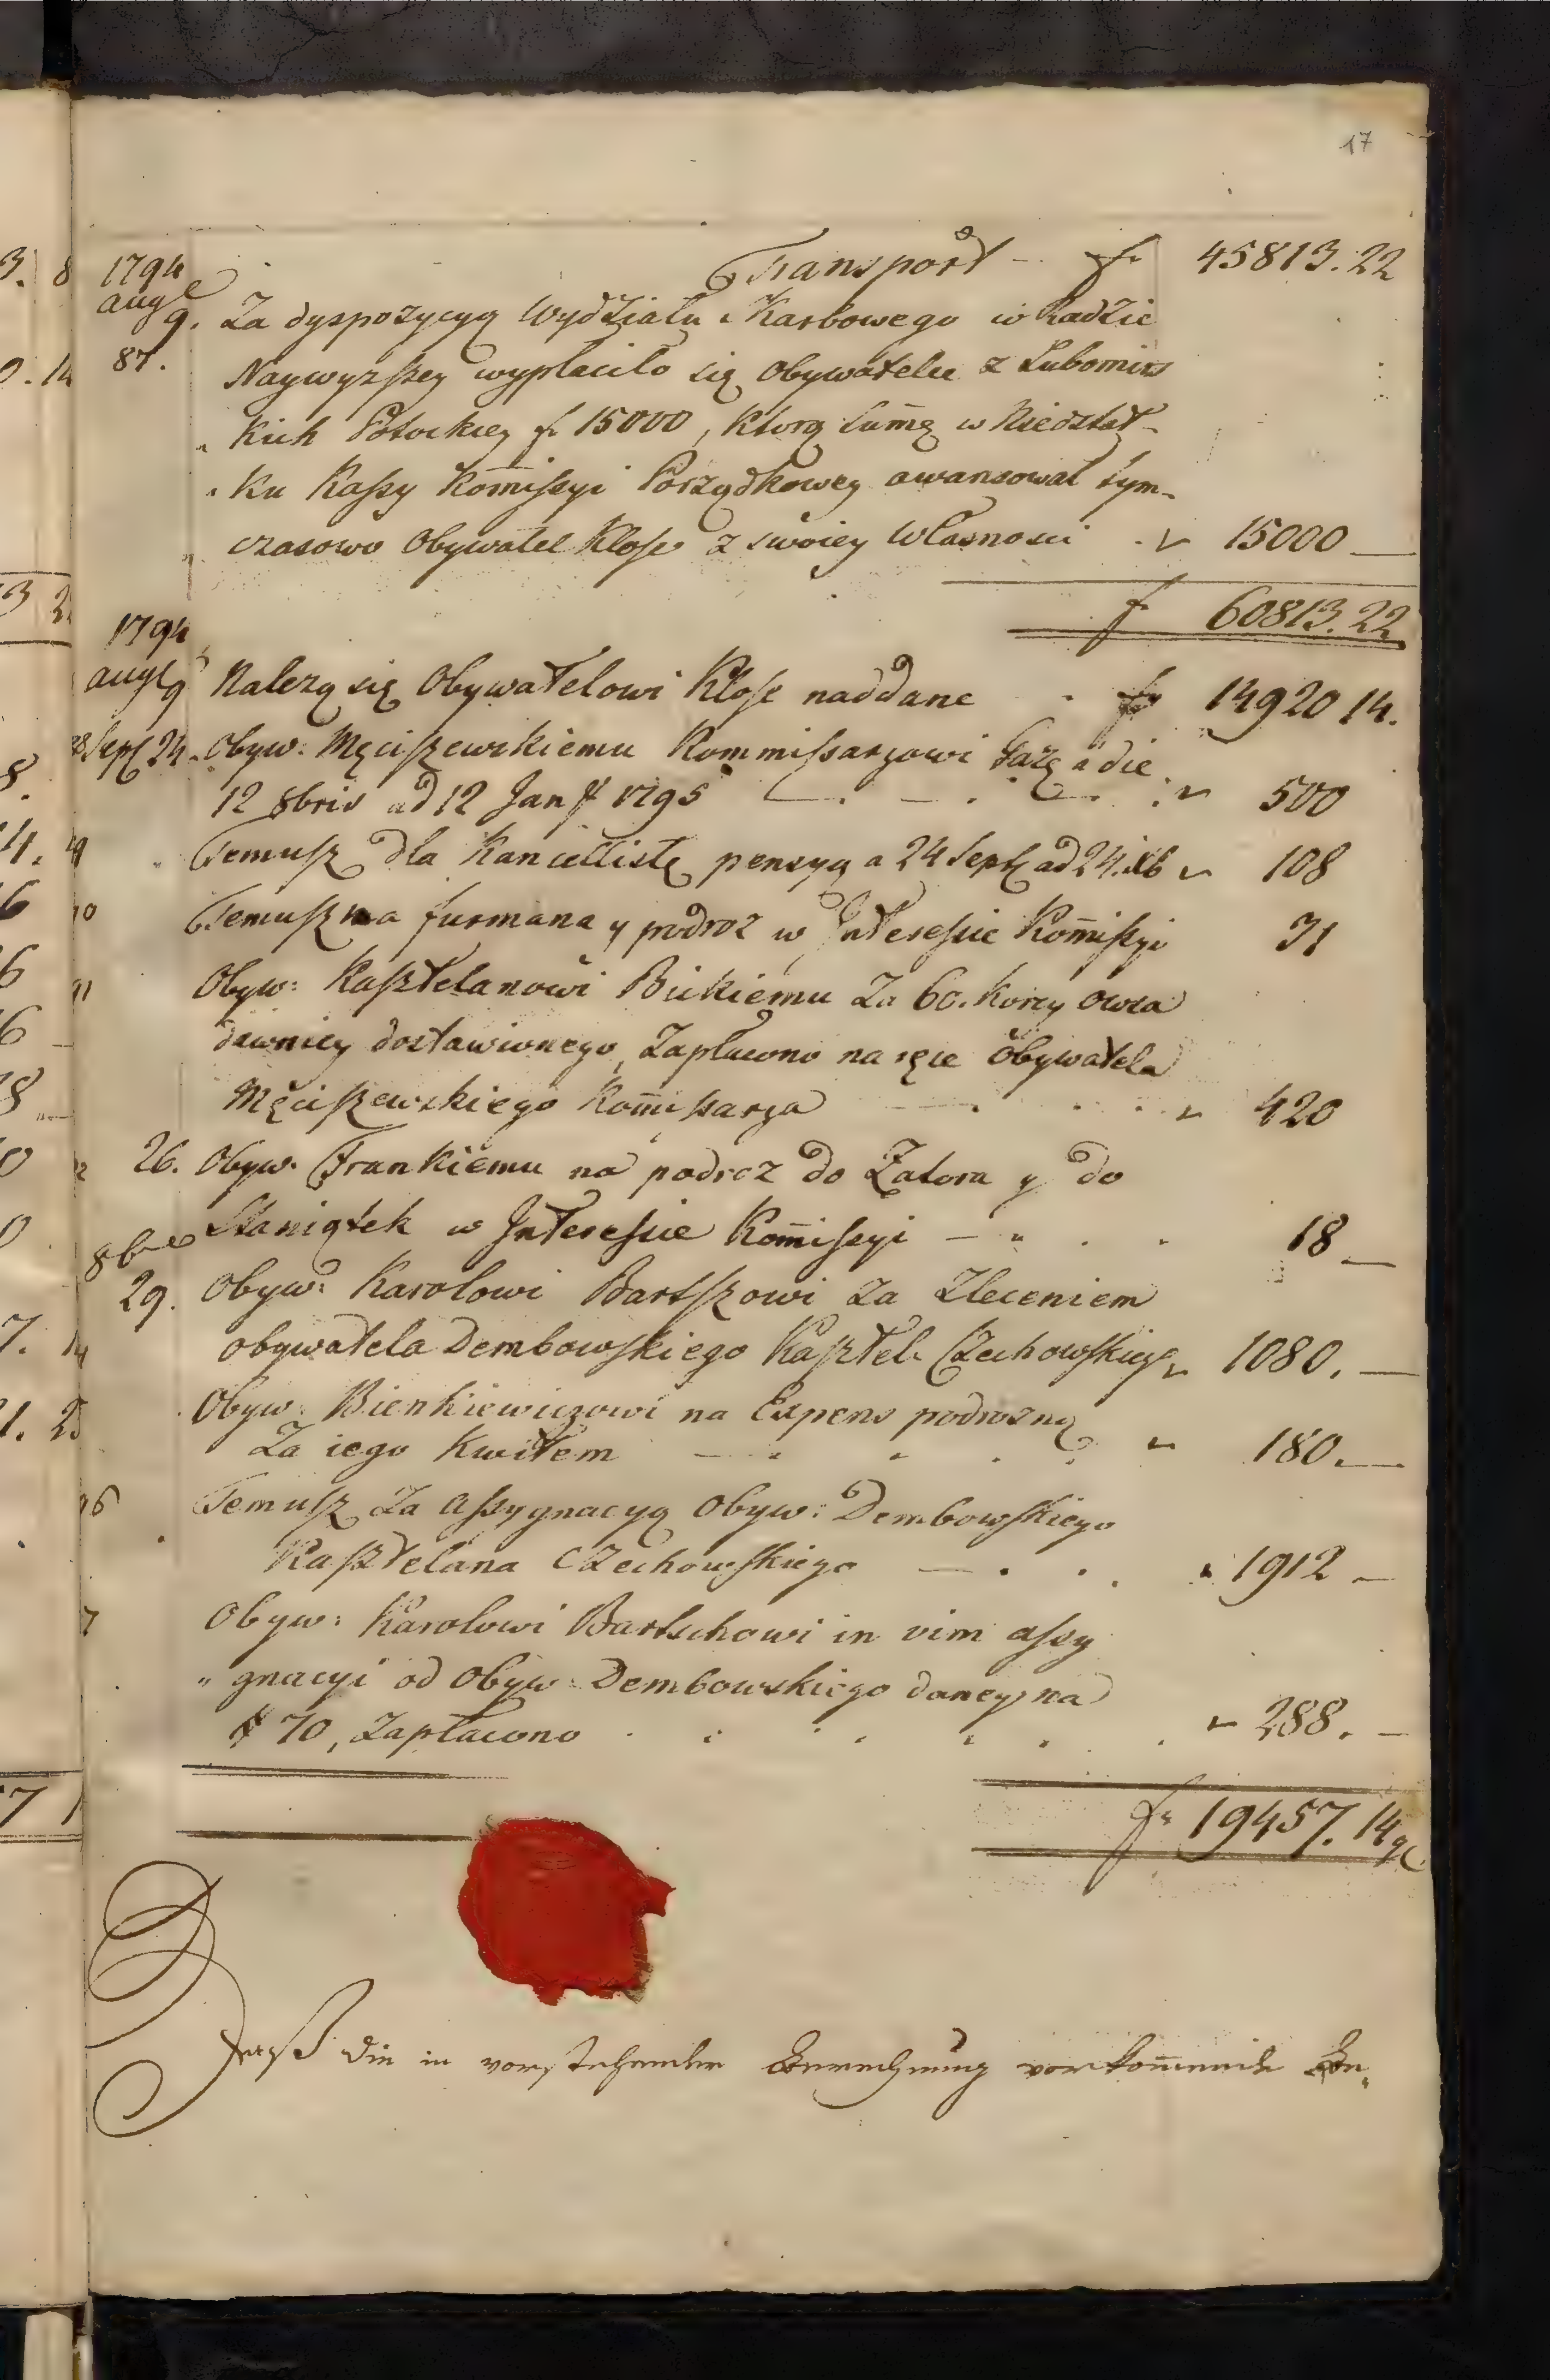 17
Transport - f 45813.22
1794
augt
9. Za dyspozycyą Wydziału Skarbowego w Radzie
87. Naywyzszey wypłaciło się Obywatelce z Lubomirs
kich Potockiey f 15000, ktorą summę w Niedostat-
ku Kassy Kom̅issyi Porządkowey awansował tym-
czasowo Obywatel Klose z swoiey Własnosci 15000 —
f 60813.22
1794
augt 9 Nalezą się Obywatelowi Klose naddane 14920 14.
Sept 24. Obyw: Męciszewskiemu Kommissarzowi Gażę a die
12 8bris ad 12 Jan 1795 — 500
Temusz dla Kancellistę pensyą a 24 Sept ad 24. Xb 108
Temusz na furmana y podroz w Interessie Kom̅issyi 31
91 Obyw: Kasztelanowi Bickiemu Za 60. Korcy owsa
dawniey dostawionego, Zapłacono na ręce Obywatela
Męciszewskiego Kom̅issarza 420
26. Obyw. Frankiemu na podroz do Zatora y do
Staniątek w Interessie Kom̅issyi — 18 —
8bre
29. Obyw: Karolowi Bartszowi za Zleceniem
obywatela Dembowskiego Kasztel. Czechowskieg 1080. —
Obyw: Bienkiewiczowi na Expens podrozną
Za iego Kwitem — 180. —
96 Temusz Za Assygnacyą Obyw: Dembowskiego
Kasztelana Czechowskiego — 1912 —
7 Obyw: Karolowi Bartschowi in vim assy
" gnacyi od Obyw: Dembowskiego daney na
# 70, Zapłacono 288. —
f 19457. 14 g
Daß die in vorstehender Berechnung vorkom̅ende Be„